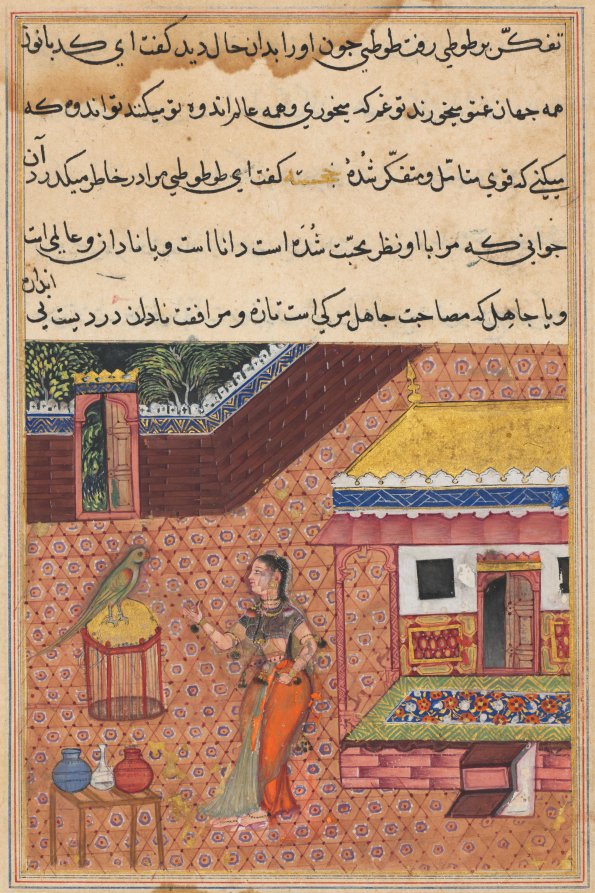 تفکّر بر طوطی رفت طوطی چون او را بدان حال دید کفت ای کدبانو
همه جهان غم تو میخورند تو غم که میخوری و همه عالم اندوه تو میکنند تو اندوه که
میکنی که قوی متامّل و متفکّر شدهٔ خجسته کفت ای طوطی مرا در خاطر میکذرد آن
جوانی که مرا با او نظر محبّت شده است دانا است و یا نادان و عالم است
و یا جاهل که مصاحبت جاهل مرکی است تازه و مرافقت نادان دردیست بی
اندازه